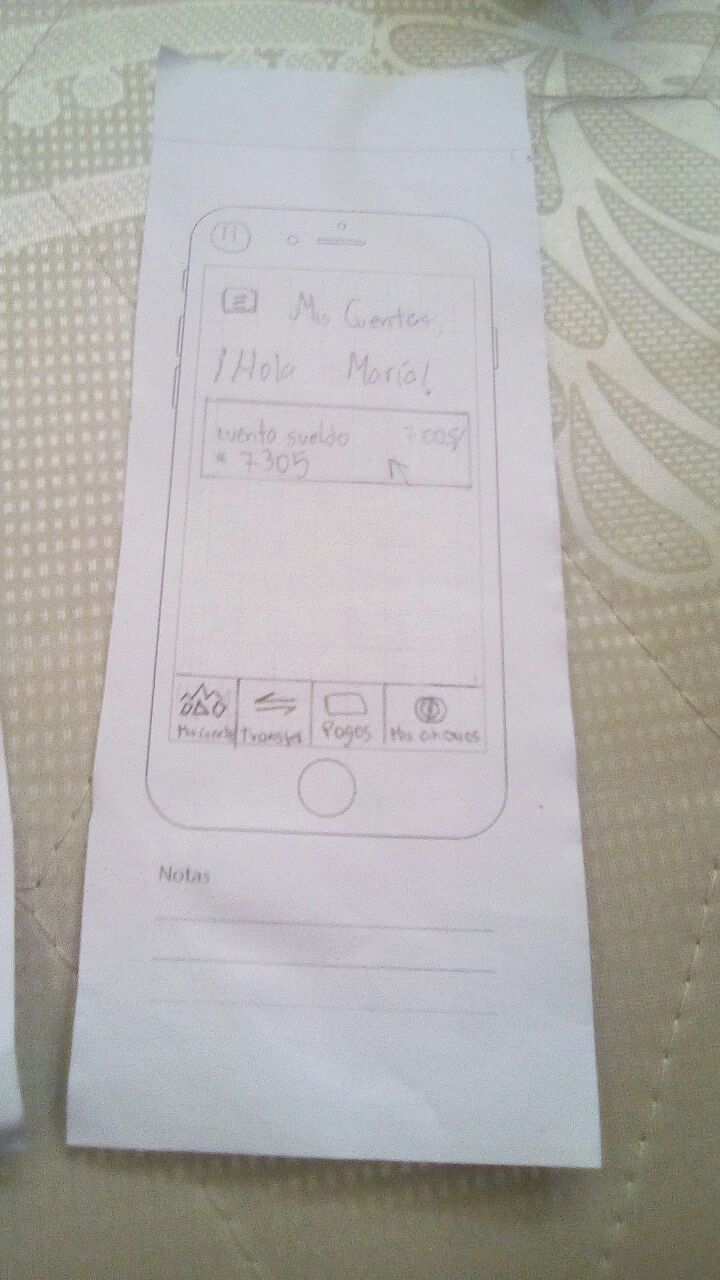 11
Mis Cuentas,
¡Hola María!
cuenta sueldo 700S/
* 7305
Mis Cuentas Transfer Pagos Mis
Notas